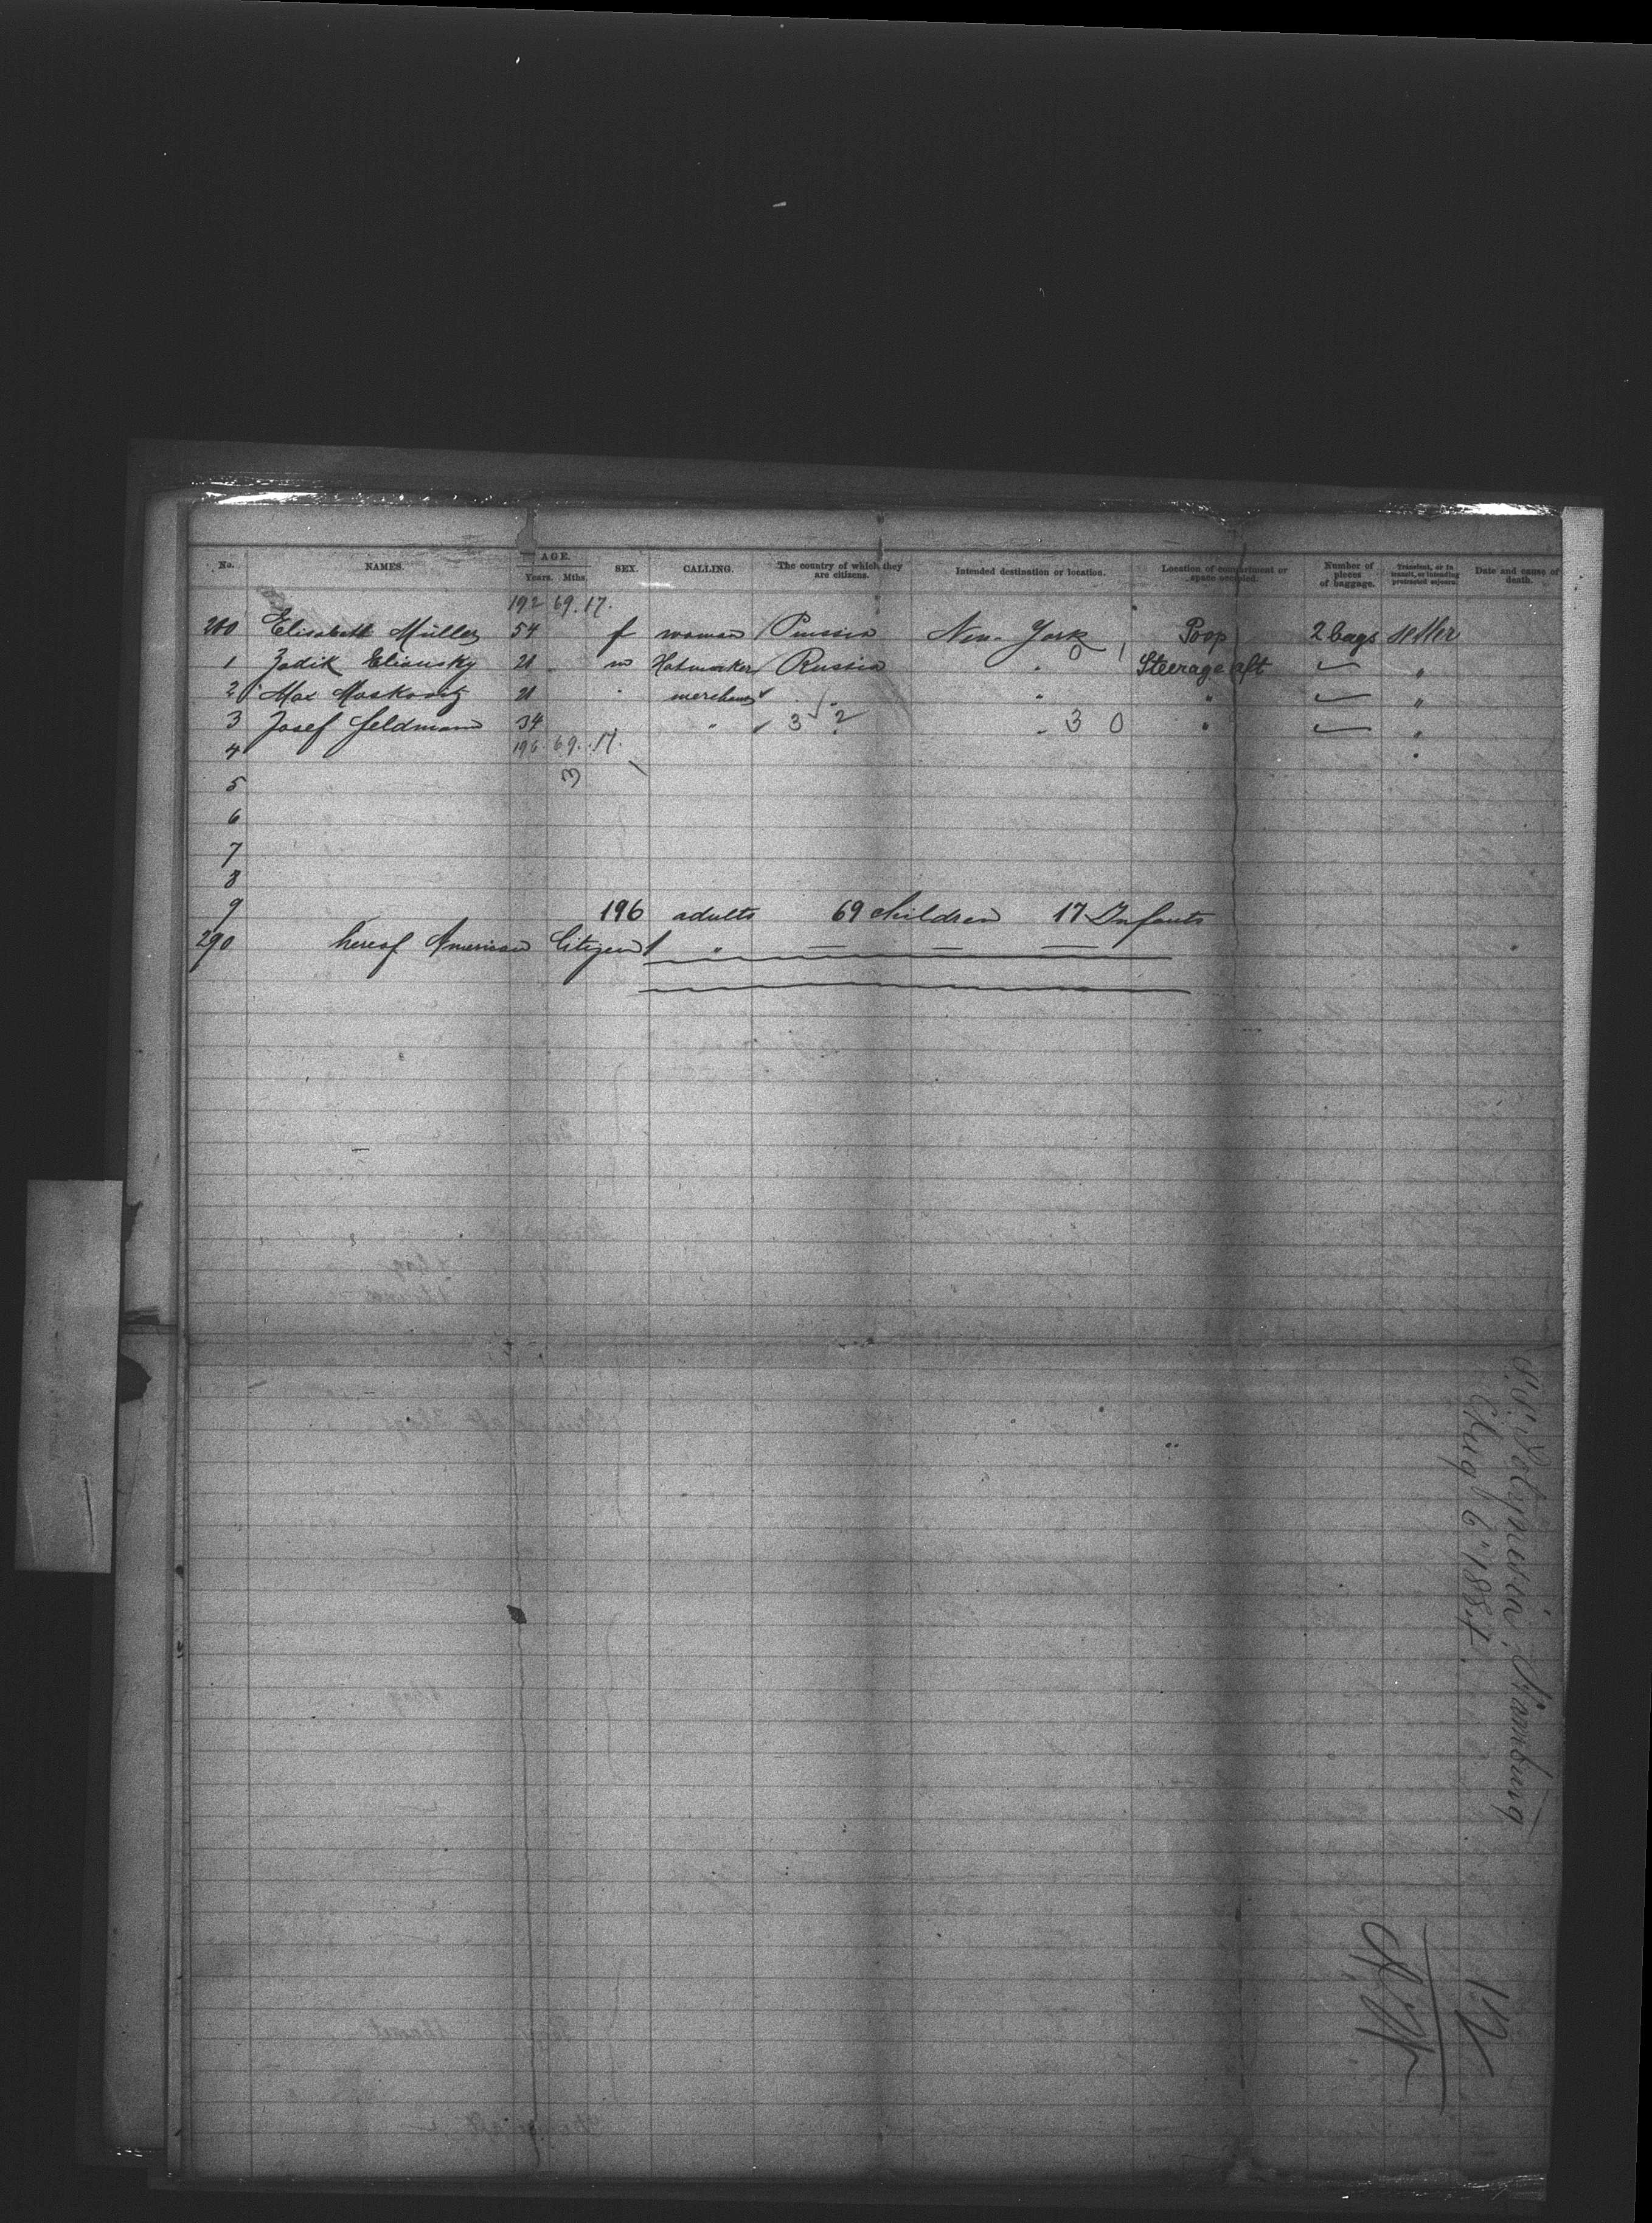 No. NAMES. AGE. Years. Mths. SEX. CALLING. The country of which they are citizens. Intended destination or location. Location of compartment or space occupied. Number of pieces of baggage. Transient, or in transit, or intending protracted sojourn. Date and cause of death.
192 69. 17.
280 Elisabeth Müller 54 f woman Prussia New-York Poop 2 bags settler
0 1
1 Zadik Eliansky 21 m Hatmaker Russia " Steerage aft "
2 Max Moskowitz 21 " merchant " " " "
3 Josef Feldmann 34 " 3 2 " 3 0 " "
4 196. 69. 17.
5 3
6
7
8
9 196 adults 69 children 17 Infants
290 hereof American Citizen 1 "
S.S. Polynesia, Hamburg
Aug 6" 1884.